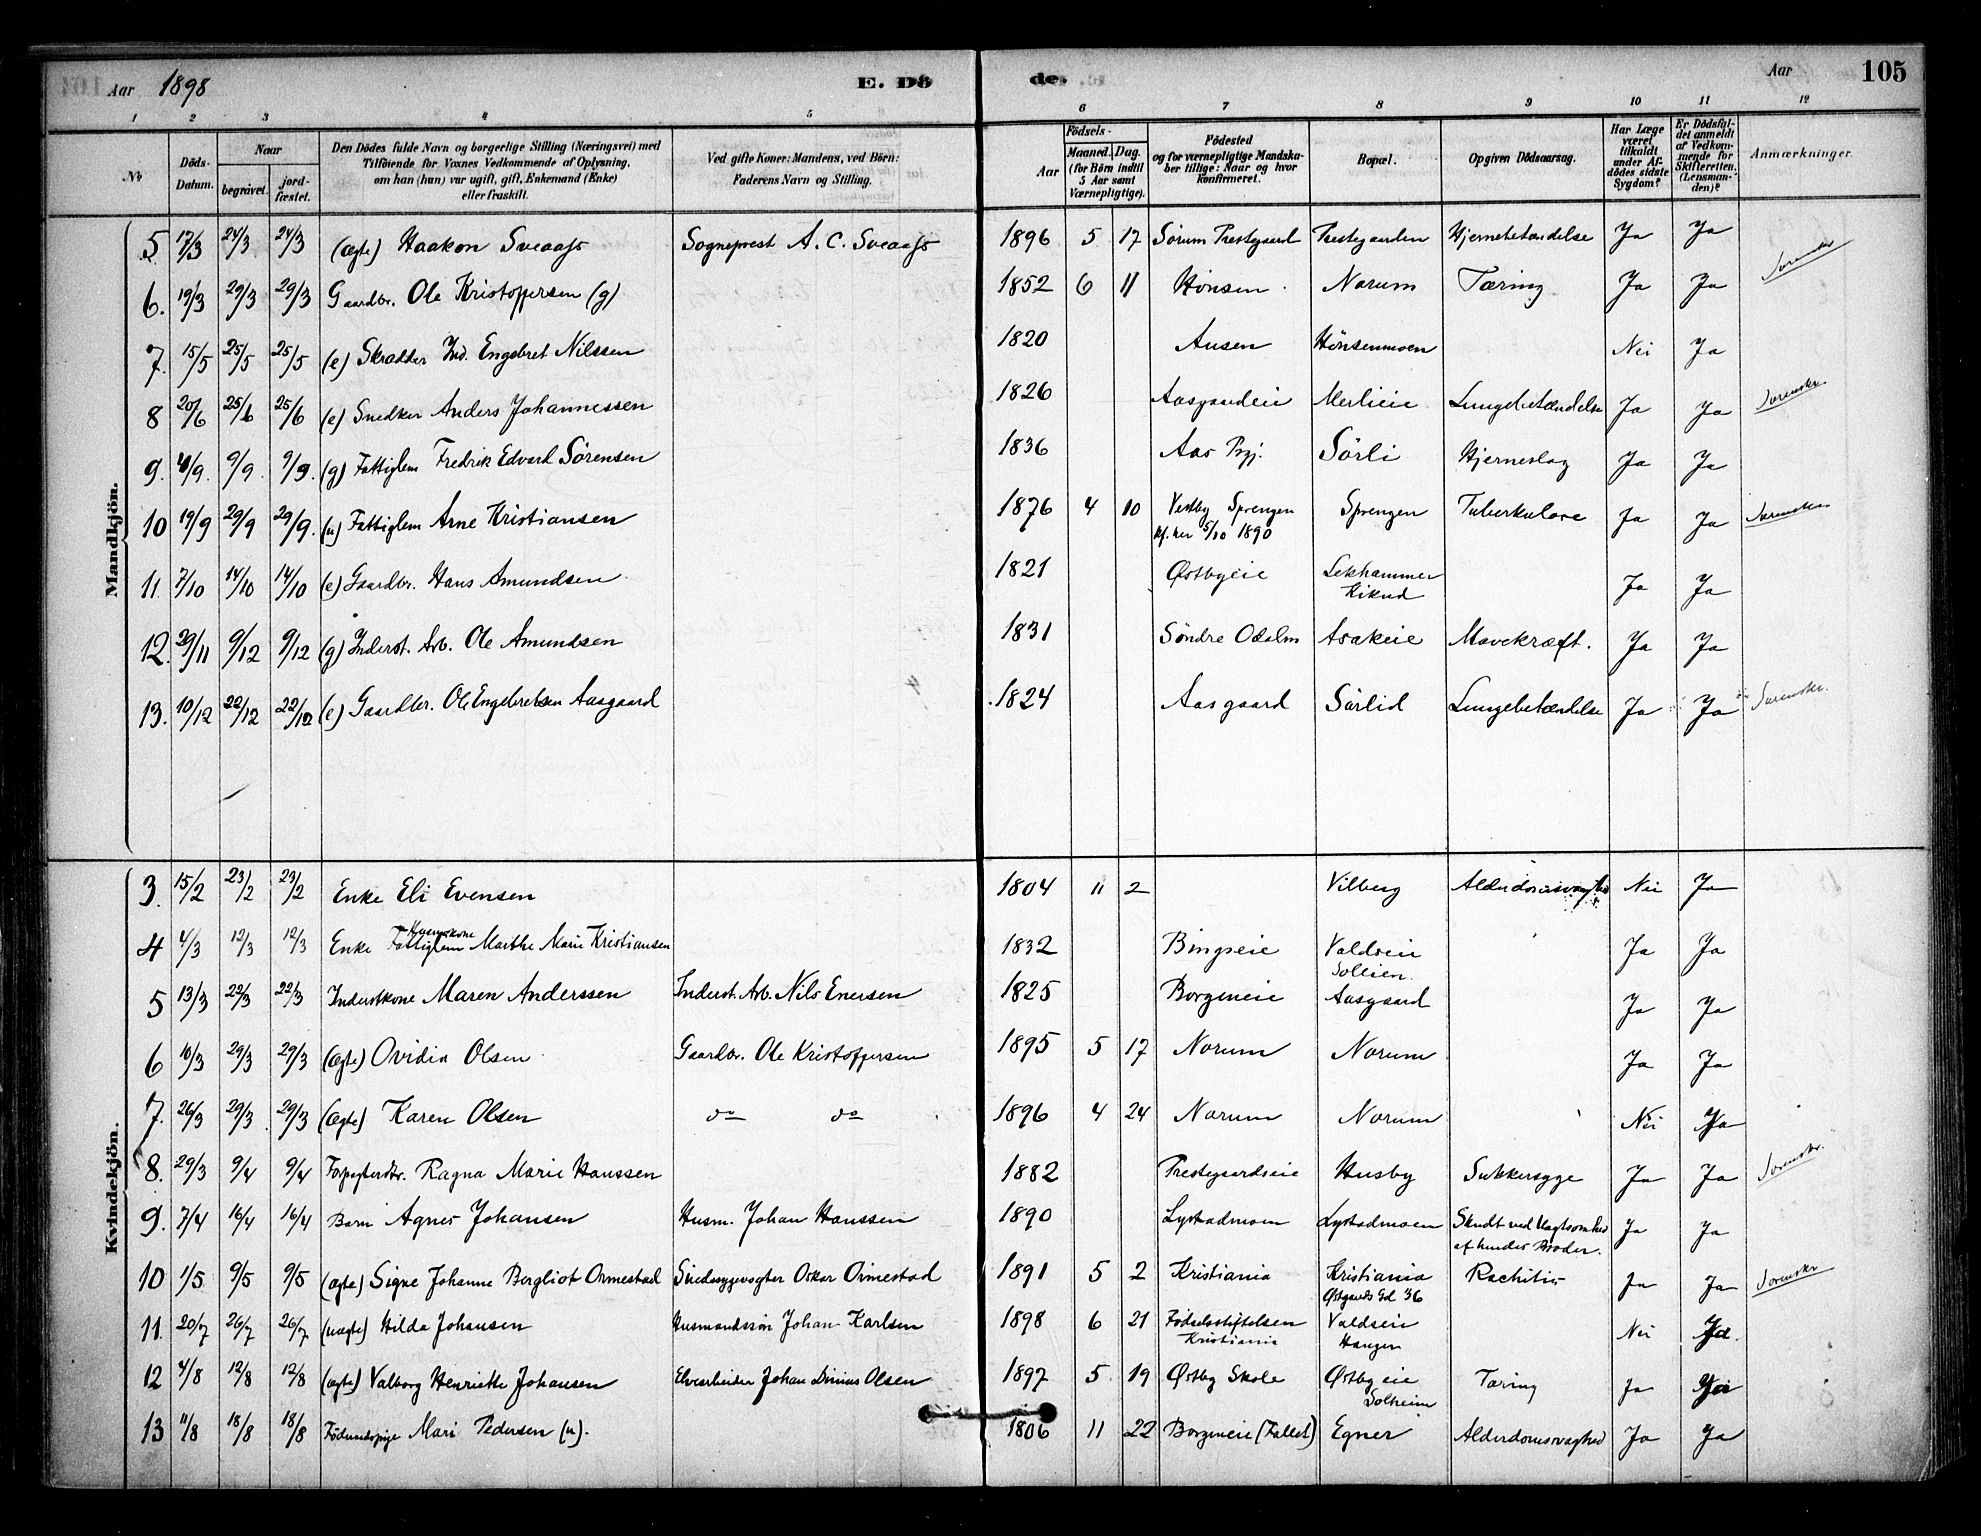 Aar 1898 E. Dö de. Aar 105
1 2 3 4 5 6 7 8 9 10 11 12
№ Döds-Datum. Naar begravet. jordfæstet. Den Dödes fulde Navn og borgerlige Stilling (Næringsvei) med Tilföiende for Voxnes Vedkommende af Oplysning, om han (hun) var ugift, gift, Enkemand (Enke) eller fraskilt. Ved gifte Koner: Mandens, ved Börn: Faderens Navn og Stilling. Födsels- Aar Maaned. Dag. (for Börn indtil 5 Aar samt Værnepligtige). Födested og for værnepligtige Mandskaber tillige: Naar og hvor konfirmeret. Bopæl. Opgiven Dödsaarsag. Har Læge været tilkaldt under Afdödes sidste Sygdom? Er Dödsfaldet anmeldt af Vedkommende for Skifteretten. (Lensmanden)? Anmærkninger.
Mandkjön.
5. 17/3 24/3 24/3 (ægte) Haakon Sveaass Sogneprest A. C. Sveaass 1896 5 17 Sørum Prestegaard Prestegaarden Hjernebetændelse Ja Ja
6. 19/3 29/3 29/3 Gaardbr. Ole Kristoffersen (g) 1852 6 11 Hønsen Norum Tæring Ja Ja Sorenskr
7. 15/5 25/5 25/5 (e) Skrædder Ind. Engebret Nilssen 1820 Ausen Hønsenmoen Nei Ja
8 20/6 25/6 25/6 (e) Snedker Anders Johannessen 1826 Aasgaardeie Merlieie Lungebetændelse Ja Ja Sorenskr.
9. 4/9. 9/9. 9/9. (g) Fattiglem Fredrik Edvard Sørensen 1836 Aas Pgj. Sørli Hjerneslag Ja Ja
10 19/9 29/9 29/9. (u) Fattiglem Arne Kristiansen 1876 4 10 Vestby Sprengen Sprengen Tuberkulose Ja Ja Sorenskr.
kf. her 5/10 1890
11. 7/10 14/10 14/10 (e) Gaardbr. Hans Amundsen 1821 Østbyeie Lekhammer Ja Ja
Kikud
12. 29/11 9/12 9/12 (g) Inderst. Arb. Ole Amundsen 1831 Søndre Odalen Asakeie Mavekræft. Ja Ja
13. 10/12 22/12 22/12 (e) Gaardbr. Ole Engebretsen Aasgaard 1824 Aasgaard Sørlid Lungebetændelse Ja Ja Sorenskr.
Kvindekjön.
3. 15/2 23/2 23/2 Enke Eli Evensen 1804 11 2 Vilberg Alderdomssvaghed Nei Ja
Husmkone
4 4/3 12/3 12/3 Enke Fattiglem Marthe Marie Kristiansen 1832 Bingseie Valdseie Ja Ja
Sollien.
5 13/3 22/3 22/3 Inderstkone Maren Anderssen Inderst. Arb. Nils Enersen 1825 Borgeneie Aasgaard Ja Ja
6 10/3 29/3 29/3 (ægte) Ovidia Olsen Gaardbr. Ole Kristoffersen 1895 5 17 Norum Norum Ja Ja
7. 26/3 29/3 29/3 (ægte) Karen Olsen do do 1896 4 24 Norum Norum Nei Ja
8. 29/3 9/4 9/4 Forpagterdtr. Ragna Marie Hanssen 1882 Prestegaardseie Husby Sukkersyge Ja Ja Sorenskr.
9. 7/4 16/4 16/4 Barn Agnes Johansen Husm. Johan Hanssen 1890 Lystadmoen Lystadmoen Skudt ved Uagtsomhed Ja Ja
af hendes Broder.
10 1/5 9/5 9/5 (ægte) Signe Johanne Bergliot Ormestad Sindssygevogter Oskar Ormestad 1891 5 2 Kristiania Kristiania Rachitis Ja Ja Sorenskr
Østgaards Gd 36
11. 20/7 26/7 26/7 (uægte) Hilda Johansen Husmandssøn Johan Karlsen 1898 6 21 Fødselsstiftelsen Valdseie Nei Ja.
Kristiania Haugen
12 4/8 12/8 12/8 (ægte) Valborg Henriette Johansen Elvearbeider Johan Dinius Olsen 1897 5 19 Østby Skole Østbyeie Tæring Ja Ja
Solheim
13 11/8 18/8 18/8 Føderaadspige Mari Pedersen (u). 1806 11 22 Borgeneie (Fallet) Egner Alderdomssvaghed Ja Ja